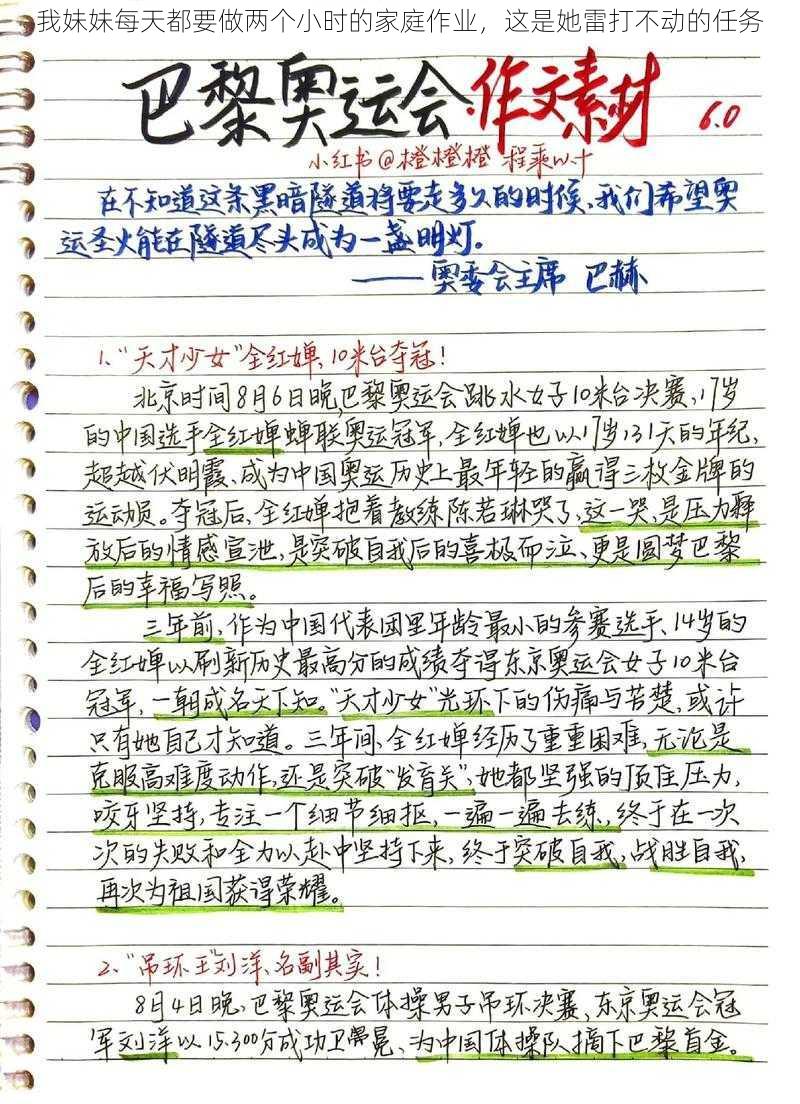 我妹妹每天都要做两个小时的家庭作业，这是她雷打不动的任务
巴黎奥运会作文素材 6.0
小红书@橙橙橙 程乘以十
在不知道这条黑暗隧道将要走多久的时候、我们希望奥
运圣火能在隧道尽头成为一盏明灯。
——奥委会主席 巴赫
1、“天才少女”全红婵、10米台夺冠！
北京时间8月6日晚,巴黎奥运会跳水女子10米台决赛、17岁
的中国选手全红婵蝉联奥运冠军,全红婵也以17岁131天的年纪,
超越伏明霞、成为中国奥运历史上最年轻的赢得三枚金牌的
运动员。夺冠后,全红婵抱着教练陈若琳哭了,这一哭,是压力释
放后的情感宣泄,是突破自我后的喜极而泣、更是圆梦巴黎
后的幸福写照。
三年前,作为中国代表团里年龄最小的参赛选手、14岁的
全红婵以刷新历史最高分的成绩夺得东京奥运会女子10米台
冠军,一朝成名天下知。“天才少女”光环下的伤痛与苦楚,或许
只有她自己才知道。三年间,全红婵经历了重重困难,无论是
克服高难度动作,还是突破“发育关”,她都坚强的顶住压力,
咬牙坚持,专注一个细节细抠,一遍一遍去练,终于在一次
次的失败和全力以赴中坚持下来,终于突破自我,战胜自我,
再次为祖国获得荣耀。
2、“吊环王”刘洋、名副其实！
8月4日晚,巴黎奥运会体操男子吊环决赛、东京奥运会冠
军刘洋以15.300分成功卫冕、为中国体操队摘下巴黎首金。